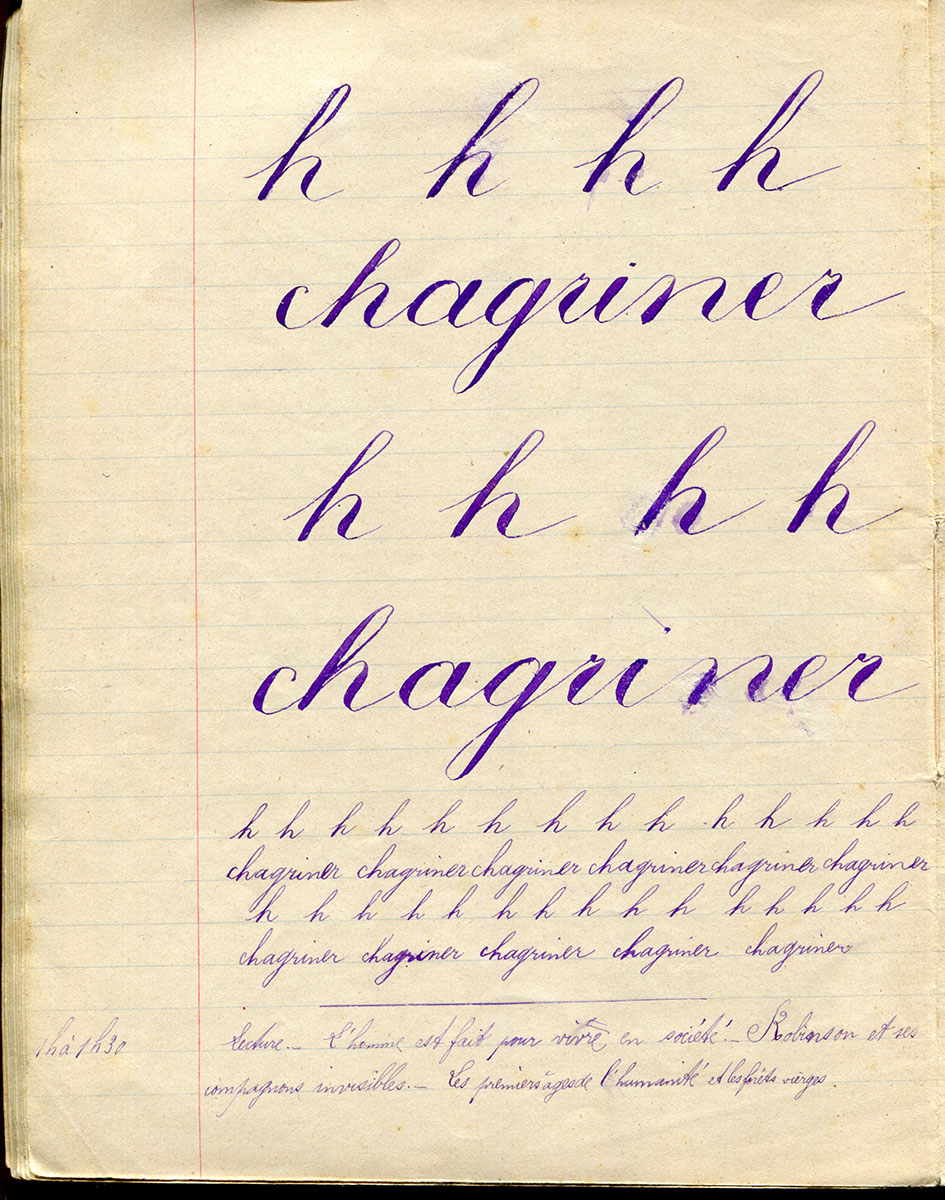 h h h h
chagriner
h h h h
chagriner
h h h h h h h h h h h h h h
chagriner chagriner chagriner chagriner chagriner chagriner
h h h h h h h h h h h h h h h
chagriner chagriner chagriner chagriner chagriner
1h à 1h30 Lecture._ L'homme est fait pour vivre en société._ Robinson et ses
compagnons invisibles._ Les premiers âges de l'humanité et les forêts vierges.